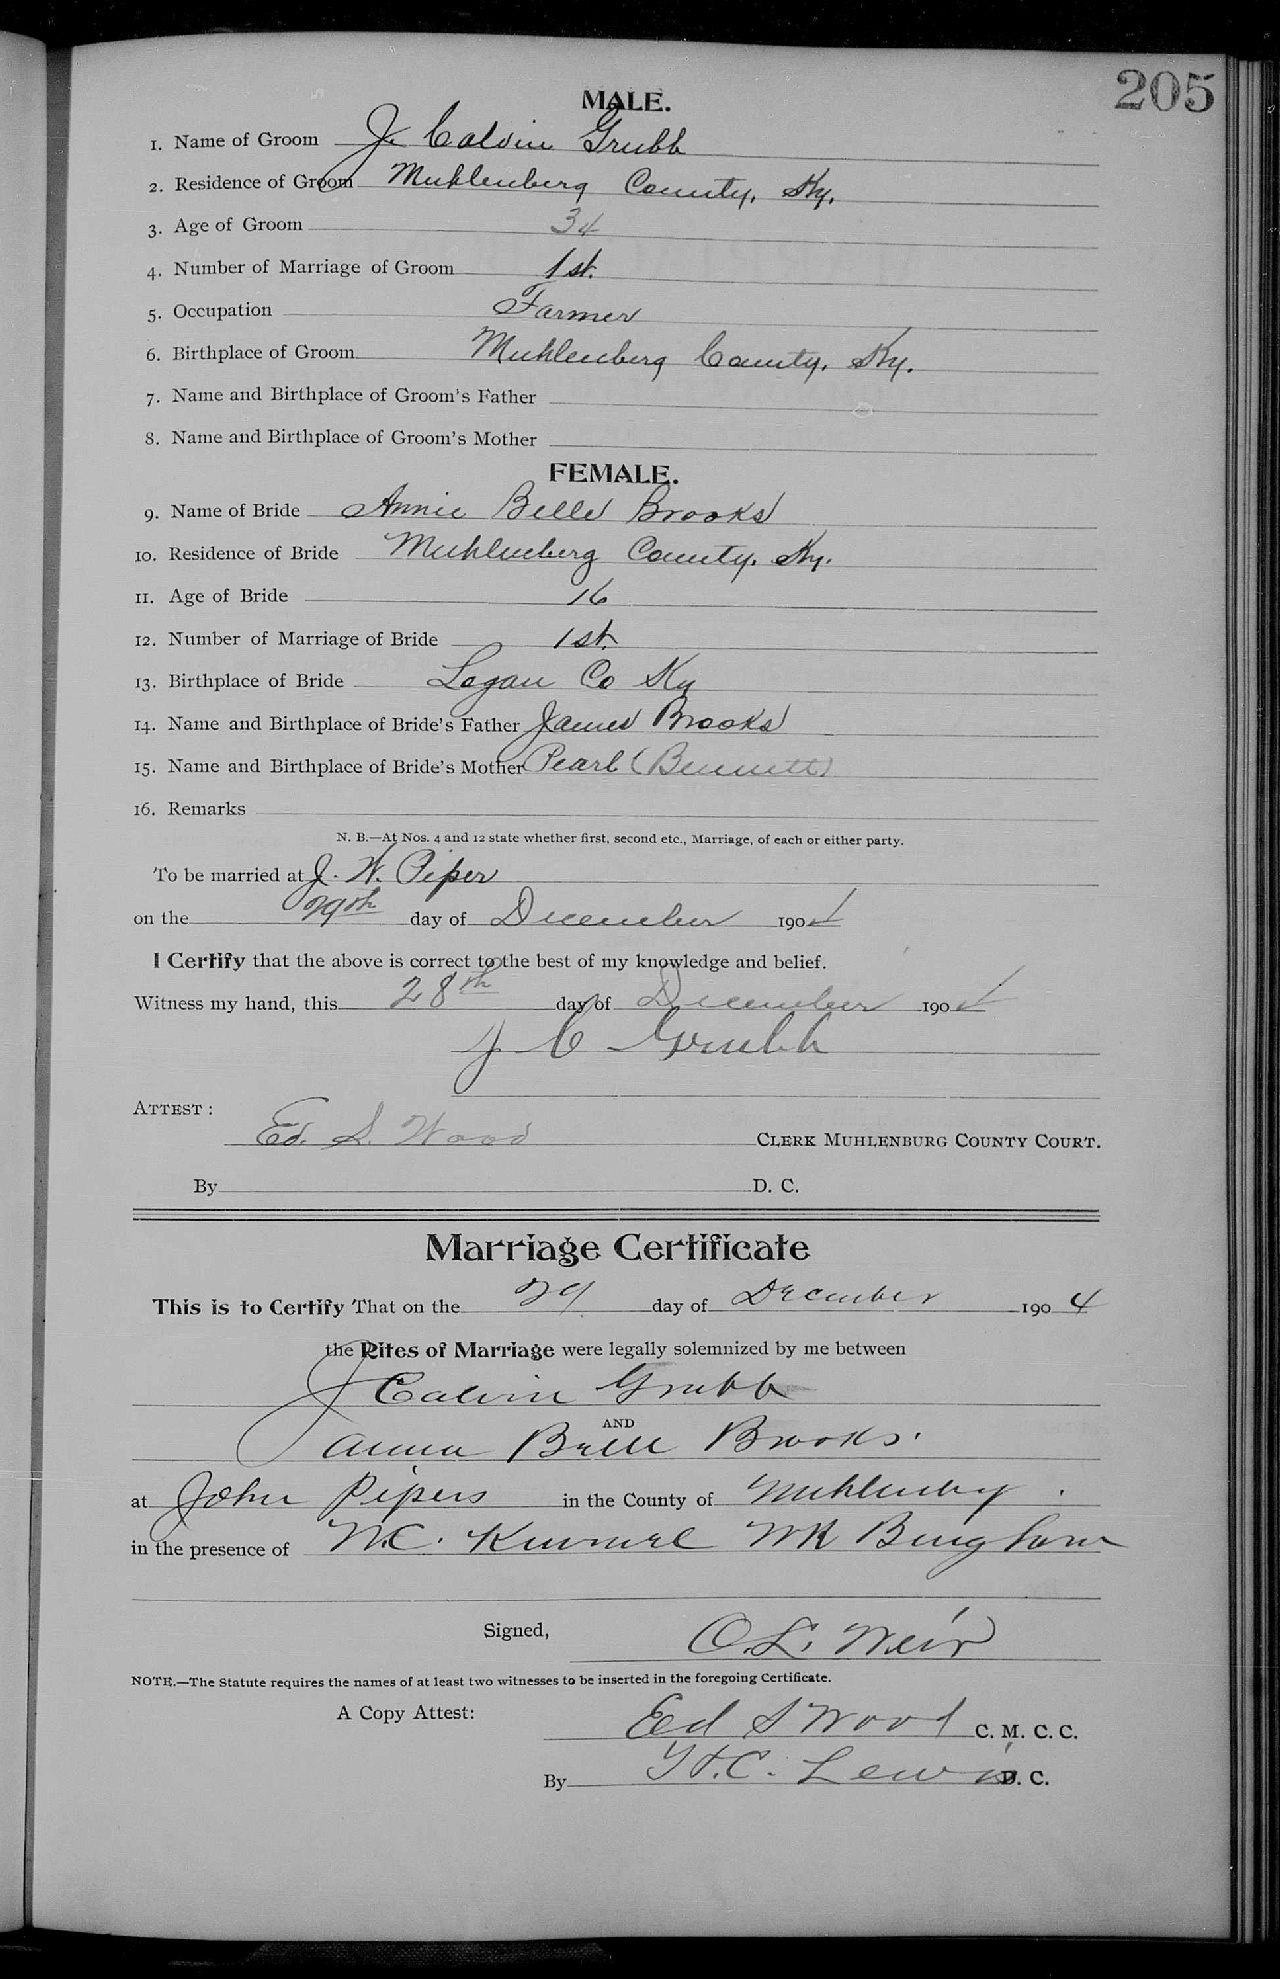 205
MALE.
1. Name of Groom J. Calvin Grubb
2. Residence of Groom Muhlenberg County, Ky.
3. Age of Groom 34
4. Number of Marriage of Groom 1st.
5. Occupation Farmer
6. Birthplace of Groom Muhlenberg County, Ky.
7. Name and Birthplace of Groom's Father
8. Name and Birthplace of Groom's Mother
FEMALE.
9. Name of Bride Annie Belle Brooks
10. Residence of Bride Muhlenberg County, Ky.
11. Age of Bride 16
12. Number of Marriage of Bride 1st.
13. Birthplace of Bride Logan Co Ky
14. Name and Birthplace of Bride's Father James Brooks
15. Name and Birthplace of Bride's Mother Pearl (Bennett)
16. Remarks
N. B.—At Nos. 4 and 12 state whether first, second etc., Marriage, of each or either party.
To be married at J. W. Piper
on the 29th day of December 1904
I Certify that the above is correct to the best of my knowledge and belief.
Witness my hand, this 28th day of December 1904
J C Grubb
ATTEST:
Ed. S. Wood CLERK MUHLENBURG COUNTY COURT.
By D. C.
Marriage Certificate
This is to Certify That on the 29 day of December 1904
the Rites of Marriage were legally solemnized by me between
J Calvin Grubb
AND
Anna Belle Brooks.
at John Pipers in the County of Muhlenberg.
in the presence of W.C. WR Bingham
Signed, O.L. Weir
NOTE.—The Statute requires the names of at least two witnesses to be inserted in the foregoing Certificate.
A Copy Attest: Ed S Wood C. M. C. C.
By H.C. Lewis D. C.